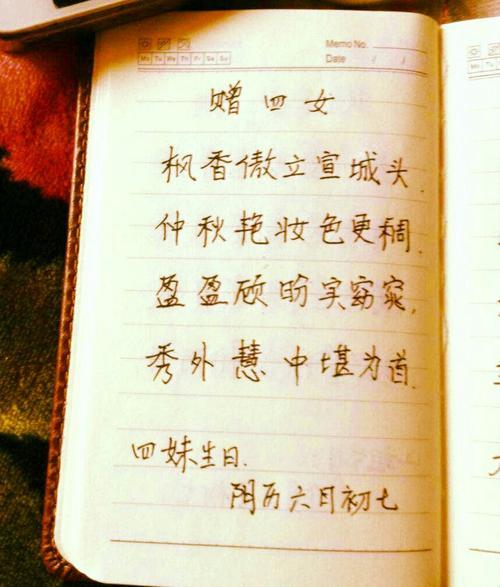 Memo No.
Mo Tu We Th Fr Sa Su
Date / /
赠四女
枫香傲立宣城头.
仲秋艳妆色更稠.
盈盈顾盼实窈窕,
秀外慧中堪为首.
四妹生日.
阴历六月初七